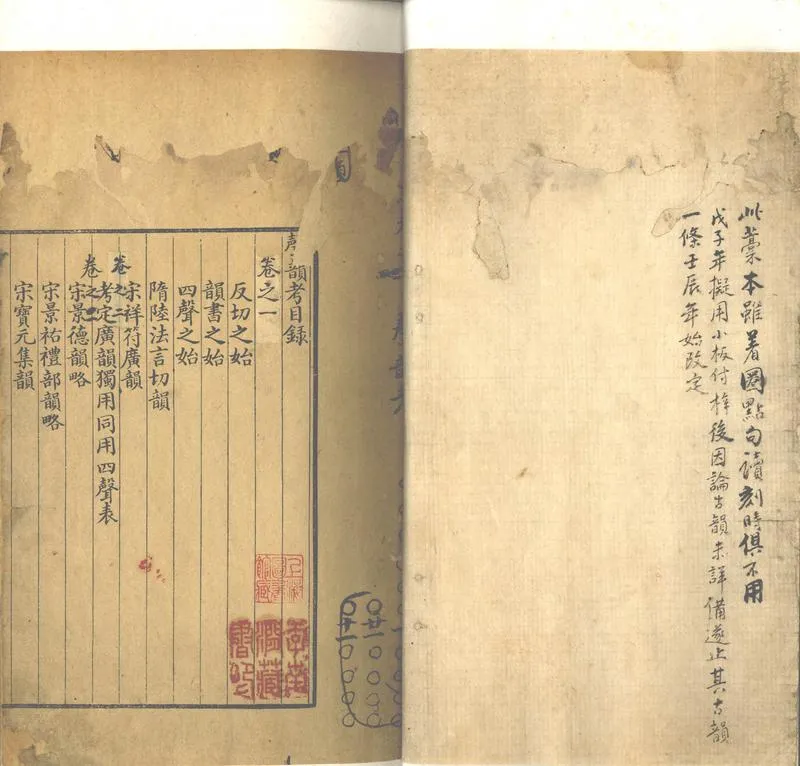 此藁本雖着圈點句讀刻時俱不用
戊子年擬用小板付梓後因論古韻未詳備遂止其古韻
一條壬辰年始改定
聲韻考目錄
卷之一
反切之始
韻書之始
四聲之始
隋陸法言切韻
宋祥符廣韻
卷之二
考定廣韻獨用同用四聲表
卷之
宋景德韻略
宋景祐禮部韻略
宋寶元集韻